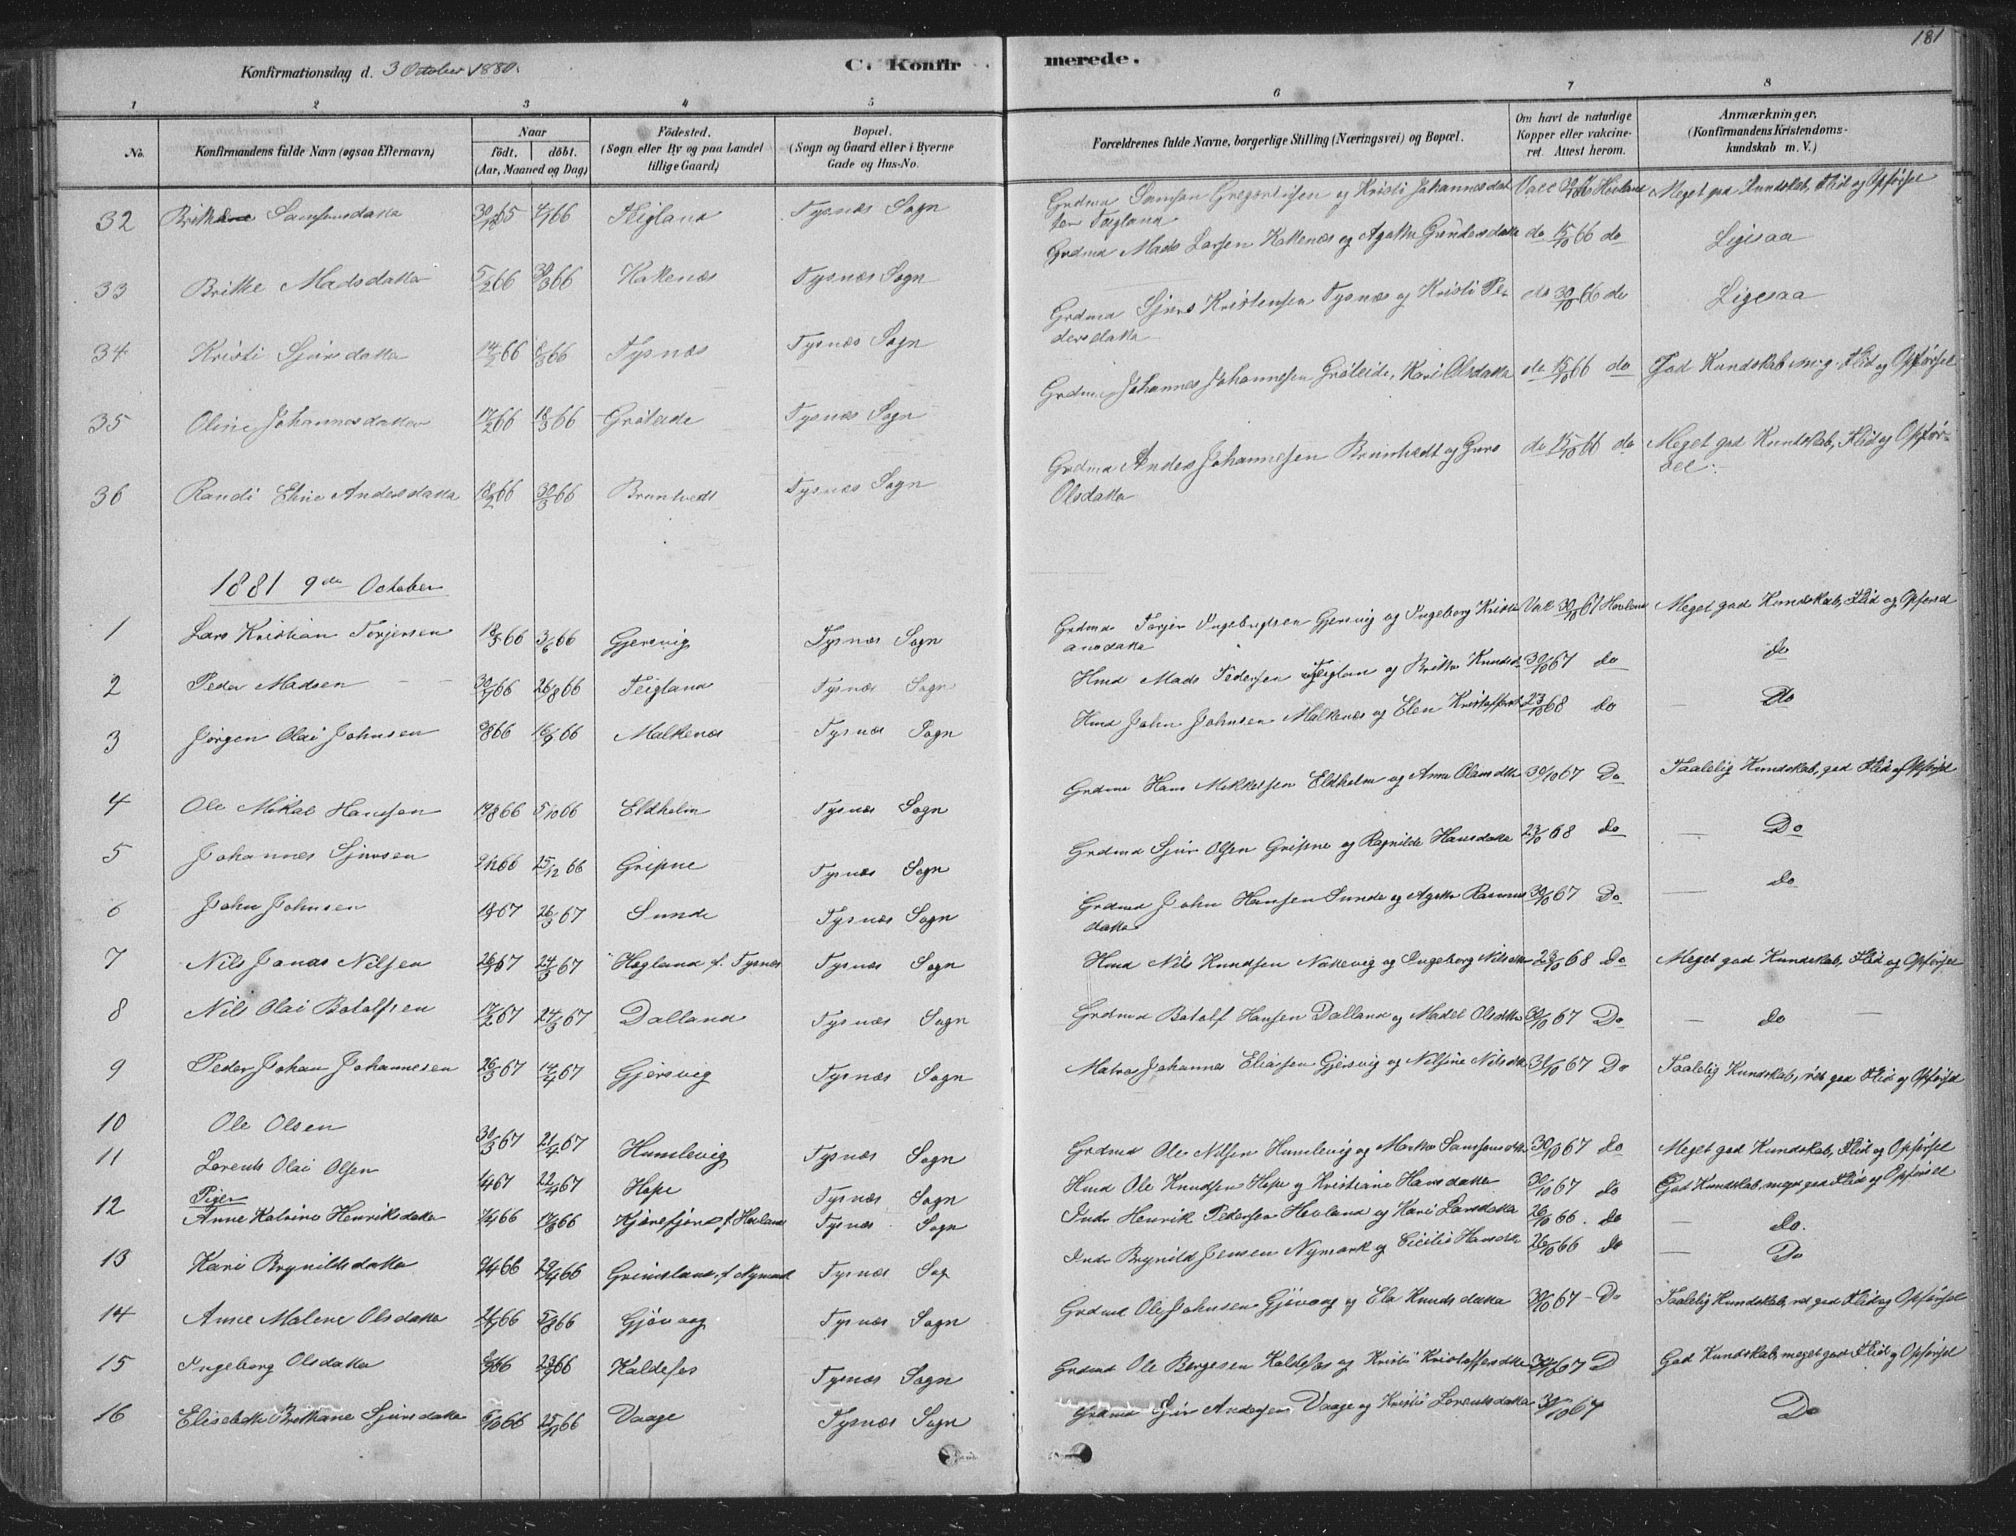 181
Konfirmationsdag d. 3 October 1880.
C. Konfirmerede.
1 2 3 4 5 6 7 8
No.
Konfirmandens fulde Navn (ogsaa Efternavn)
Naar
født. døbt.
(Aar, Maaned og Dag)
Fødested.
(Sogn eller By og paa Landet
tillige Gaard.)
Bopæl.
(Sogn og Gaard eller i Byerne
Gade og Hus-No.
Forældrenes fulde Navne, borgerlige Stilling (Næringsvei) og Bopæl.
Om havt de naturlige
Kopper eller vakcine-
ret. Attest herom.
Anmærkninger,
(Konfirmandens Kristendoms-
kundskab m. V.)
32 Samsonsdatter 30/12 65 66 Teigland Tysnæs Sogn Grdmd Samson Gregoriusen og Kristi Johannesdat
ter Teigland Vacc Hovland Meget god Kundskab, Flid og Opførsel
33 Britke Madsdatter 5/2 66 66 Kakenæs Tysnæs Sogn Grdmd Mads Larsen Kakenæs og Agatha Gundersdatter do 15/10 66 do Ligesaa
34 Kristi Sjursdatter 14/2 66 66 Tysnæs Tysnæs Sogn Grdmd Sjurs Kristensen Tysnæs og Kristi Pe-
dersdatter do 30/10 66 do Ligesaa
35 Oline Johannesdatter 17/2 66 18/3 66 Grøteide Tysnæs Sogn Grdmd Johannes Johannesen Grøteide, Kari Olsdatter do 15/10 66 do God Kundskab m. g. Flid og Opførsel
36 Randi Eline Andersdatter 18/2 66 30/3 66 Bruntvedt Tysnæs Sogn Grdmd Anders Johannesen Bruntvedt og Guro
Olsdatter do 15/10 66 do Meget god Kundskab, Flid og Opfør-
sel
1881 9de October
1 Lars Kristian Torjersen 18/5 66 3/6 66 Gjersvig Tysnæs Sogn Grdmd Torjer Ingebrigtsen Gjersvig og Ingeborg Kristi
ansdatter Vac 30/10 67 Hovland Meget god Kundskab, Flid og Opførsel
2 Peder Madsen 30/7 66 26/8 66 Teigland Tysnæs Sogn Hmd Mads Pedersen Teigland og Britta Knudsd 30/10 67 do do
3 Jørgen Olai Johnsen 66 16/9 66 Malkenes Tysnæs Sogn Hmd John Johnsen Malkenes og Elen Kristoffersd 23/10 68 do Do
4 Ole Mikal Hansen 19/8 66 5/10 66 Eldholm Tysnæs Sogn Grdmd Hans Mikkelsen Eldholm og Anna Olansdtr 30/10 67 Do Taalelig Kundskab, god Flid og Opførsel
5 Johannes Sjursen 66 25/12 66 Gripne Tysnæs Sogn Grdmd Sjur Olsen Gripne og Ragnilde Hansdatter 23/10 68 do Do
6 John Johnsen 67 26/3 67 Sunde Tysnæs Sogn Grdmd John Hansen Sunde og Agatha Rasmus
datter 30/10 67 Do do
7 Nils Jonas Nilsen 67 24/3 67 Hogland f. Tysnæs Tysnæs Sogn Hmd Nils Knudsen Nattevig og Ingeborg Nilsdtr 23/10 68 Do Meget god Kundskab, Flid og Opførsel
8 Nils Olai Botolfsen 17/2 67 24/3 67 Dalland Tysnæs Sogn Grdmd Botolf Hansen Dalland og Madel Olsdtr 30/10 67 Do do
9 Peder Johan Johannesen 26/3 67 14/4 67 Gjersvig Tysnæs Sogn Matros Johannes Eliasen Gjersvig og Nilsine Nilsdtr 31/10 67 Do Taalelig Kundskab, ret god Flid og Opførsel
10 Ole Olsen 30/3 67 21/4 67 Humlevig Tysnæs Sogn Grdmd Ole Nilsen Humlevig og Marta Samsonsdtr 30/10 67 do Meget god Kundskab, Flid og Opførsel
11 Lorents Olai Olsen 67 22/4 67 Hope Tysnæs Sogn Hmd Ole Knudsen Hope og Kristiane Hansdatter 30/10 67 do God Kundskab, meget god Flid og Opførsel
Piger
12 Anne Katrine Henriksdatter 66 66 f. Hovland Tysnæs Sogn Indr Henrik Pedersen Hovland og Kari Larsdatter 26/10 66. do do.
13 Kari Brynildsdatter 66 29/4 66 Grimsland, f. Nymark Tysnæs Sog Indr Brynild Jensen Nymark og Cicilie Hansdtr 26/10 66 do Do
14 Anne Malene Olsdatter 66 5/8 66 Gjøvaag Tysnæs Sogn Grdmd Ole Johnsen Gjøvaag og Ela Knudsdatter 30/10 67 - Do Taalelig Kundskab, ret god Flid og Opførsel
15 Ingeborg Olsdatter 66 23/9 66 Kaldefos Tysnæs Sogn Grdmd Ole Børgesen Kaldefos og Kristi Kristoffersdtr 30/10 67 D God Kundskab, meget god Flid og Opførsel
16 Elisabeth Brithane Sjursdatter 6/10 66 25/11 66 Vaage Tysnæs Sogn Grdmd Sjur Andersen Vaage og Kristi Lorentsdatter 30/10 67 Do